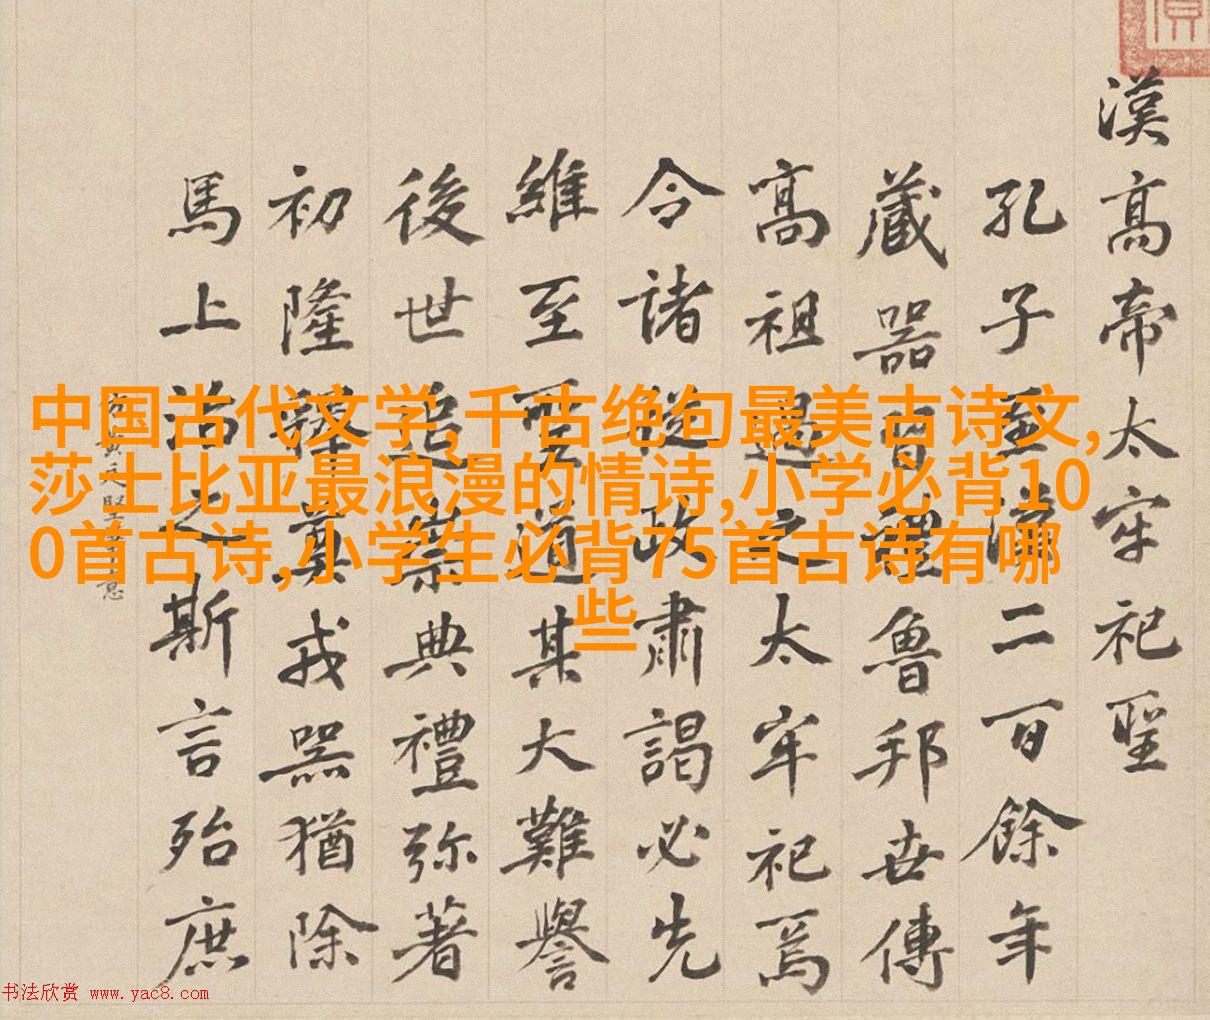 漢高帝太牢祀聖
孔子至漢二百餘年
藏器禮魯邦世傳
高祖過之太牢祀焉
令諸從政肅謁必先
維至聖道其大難譽
後世追崇典禮弥著
初隆釋奠戎器猶除
馬上治之斯言殆庶
仿黃庭堅意
中国古代文学,千古绝句最美古诗文,
莎士比亚最浪漫的情诗,小学必背10
0首古诗,小学生必背75首古诗有哪
些
书法欣赏 www.yac8.com